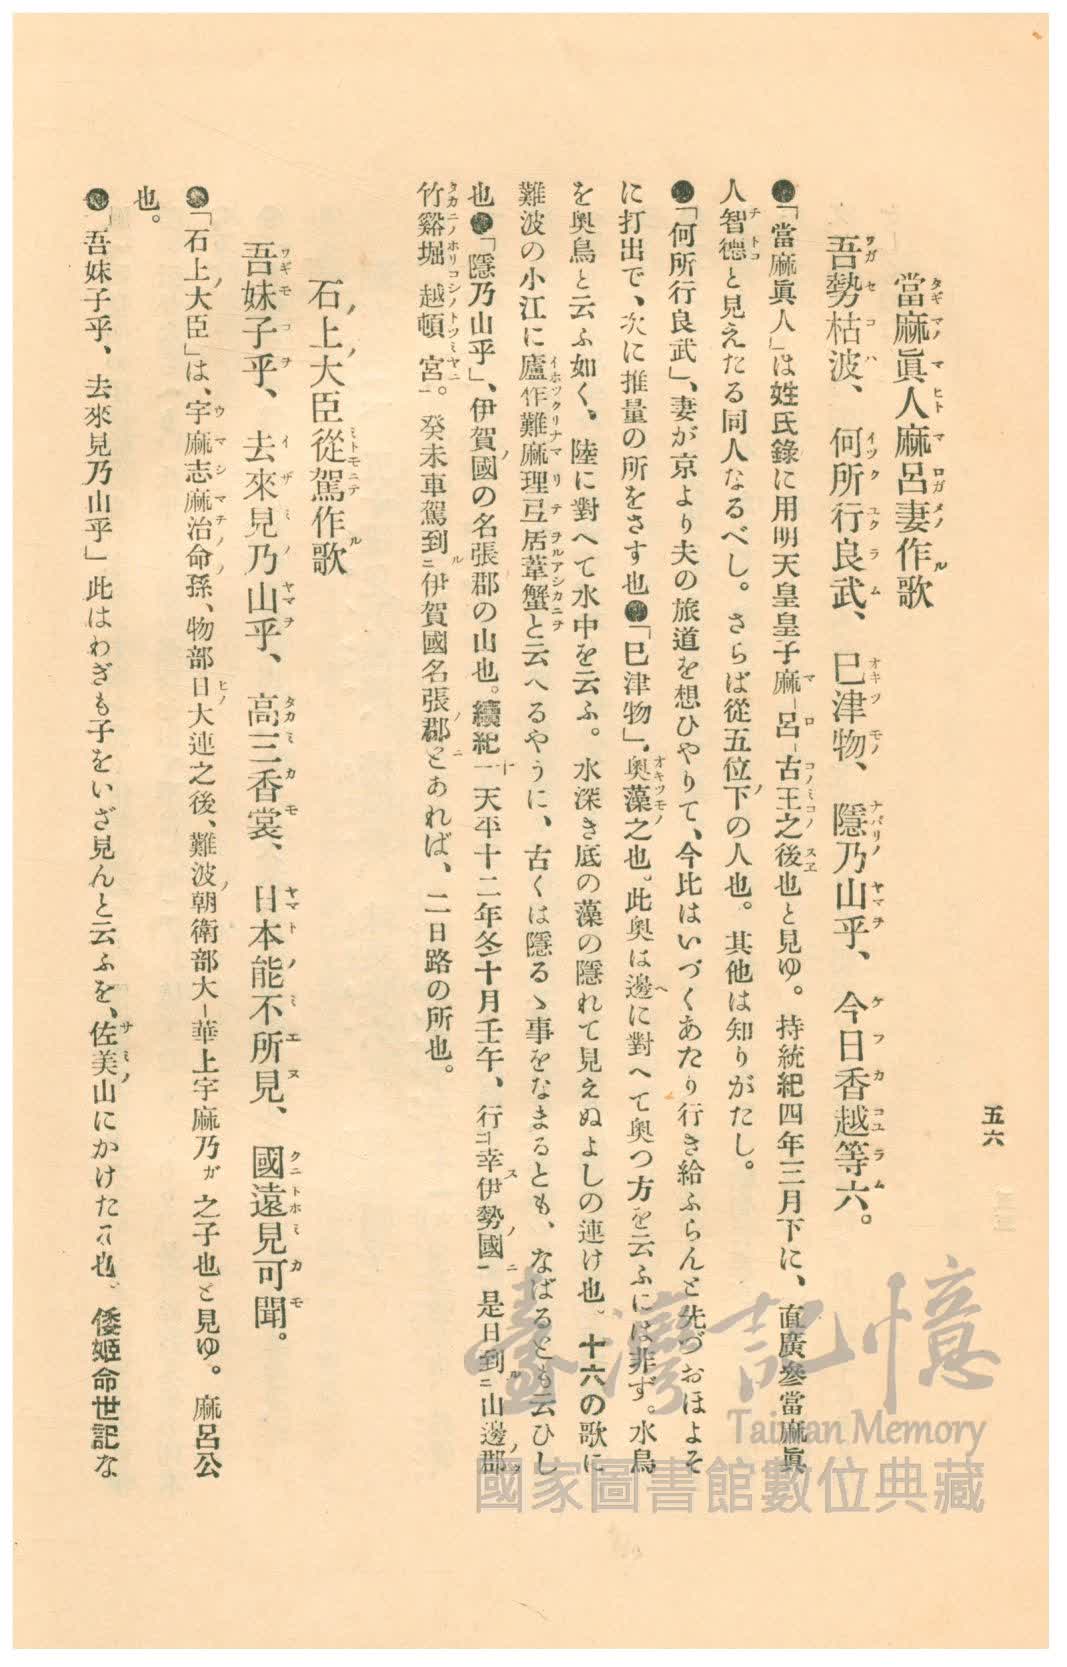 五六
當麻眞人麻呂妻作歌
吾勢枯波、何所行良武、巳津物、隱乃山乎、今日香越等六。
●「當麻眞人」は姓氏錄に用明天皇皇子麻呂古王之後也と見ゆ。持統紀四年三月下に、直廣參當麻眞
人智德と見えたる同人なるべし。さらば從五位下の人也。其他は知りがたし。
●「何所行良武」、妻が京より夫の旅道を想ひやりて、今比はいづくあたり行き給ふらんと先づおほよそ
に打出で、次に推量の所をさす也●「巳津物」、奧藻之也。此奧は邊に對へて奧つ方を云ふには非ず。水鳥
を奧鳥と云ふ如く、陸に對へて水中を云ふ。水深き底の藻の隱れて見えぬよしの連け也。十六の歌に
難波の小江に廬作難麻理弖居葦蟹と云へるやうに、古くは隱るゝ事をなまるとも、なばるとも云ひし
也●「隱乃山乎」、伊賀國の名張郡の山也。續紀一天平十二年冬十月壬午、行二幸伊勢國一是日到二山邊郡
竹谿堀越頓宮一。癸未車駕到二伊賀國名張郡一とあれば、二日路の所也。
石上大臣從駕作歌
吾妹子乎、去來見乃山乎、高三香裳、日本能不所見、國遠見可聞。
●「石上大臣」は、宇麻志麻治命孫、物部日大連之後、難波朝衛部大華上宇麻乃ガ之子也と見ゆ。麻呂公
也。
●「吾妹子乎、去來見乃山乎」此はわぎも子をいざ見んと云ふを、佐美山にかけたる也。倭姬命世記な
臺灣記憶
Taiwan Memory
國家圖書館數位典藏